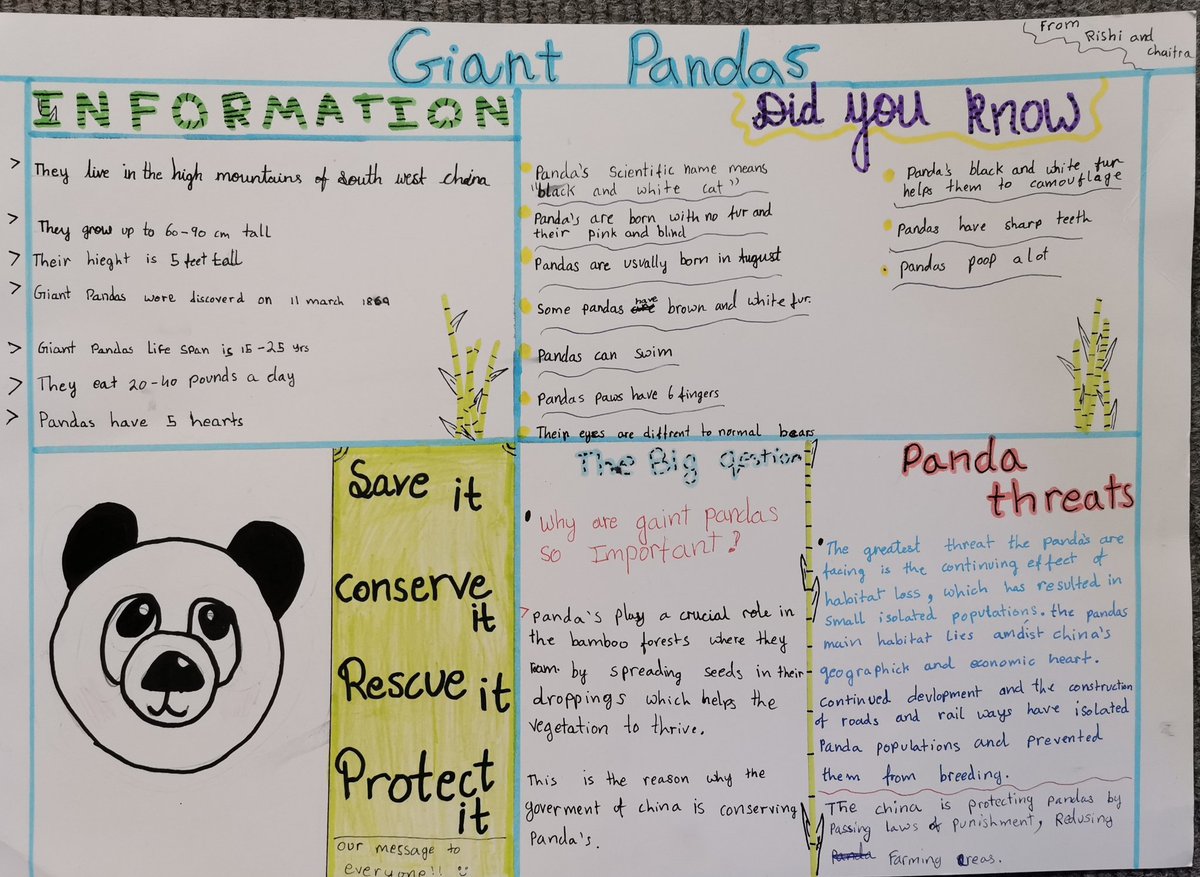 Giant Pandas
From Rishi and
Chaitra
INFORMATION
> They live in the high mountains of south west china
> They grow up to 60-90 cm tall
> Their hieght is 5 feet tall
> Giant Pandas were discoverd on 11 march 1869
> Giant Pandas Life span is 15-25 yrs
> They eat 20-40 pounds a day
> Pandas have 5 hearts
Did you know
Panda's Scientific name means
"black and white cat"
Panda's are born with no fur and
their pink and blind
Pandas are usually born in August
Some pandas have brown and white fur.
Pandas can swim
Pandas paws have 6 fingers
Their eyes are diffrent to normal bears
Panda's black and white fur
helps them to camouflage
Pandas have sharp teeth
Pandas poop a lot
Save it
conserve
it
Rescue it
Protect
it
our message to
everyone!!
The Big qestion
Why are gaint pandas
so Important?
> Panda's play a crucial role in
the bamboo forests where they
roam by spreading seeds in their
droppings which helps the
vegetation to thrive.
This is the reason why the
goverment of china is conserving
Panda's.
Panda
threats
The greatest threat the panda's are
facing is the continuing effect of
habitat loss, which has resulted in
small isolated populations. the pandas
main habitat lies amdist china's
geographick and economic heart.
continued devlopment and the construction
of roads and rail ways have isolated
Panda populations and prevented
them from breeding.
The china is protecting pandas by
Passing laws of punishment, Redusing
Farming Areas.